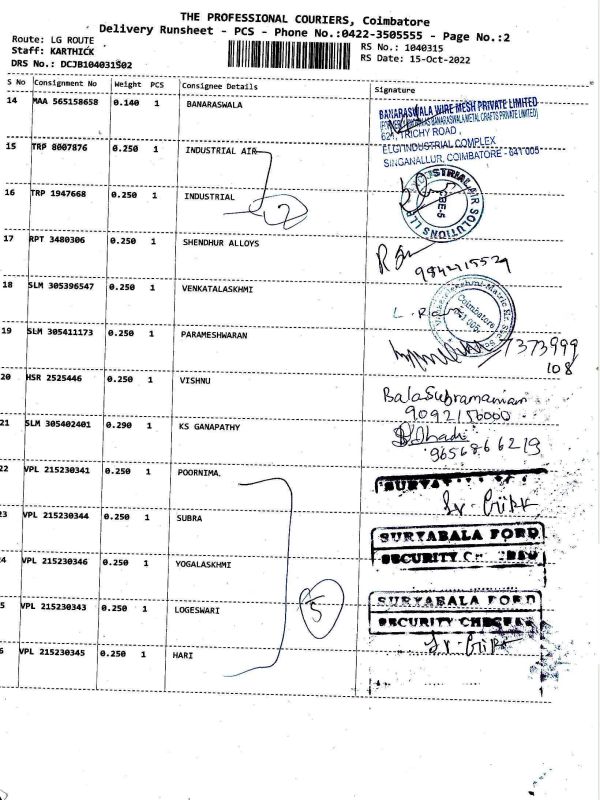 THE PROFESSIONAL COURIERS, Coimbatore
Delivery Runsheet - PCS - Phone No.:0422-3505555 - Page No.:2
Route: LG ROUTE
Staff: KARTHICK
DRS No.: DCJB104031S02
RS No.: 1040315
RS Date: 15-Oct-2022
S No Consignment No Weight PCS Consignee Details Signature
14 MAA 565158658 0.140 1 BANARASWALA
BANARASWALA WIRE MESH PRIVATE LIMITED
624, TRICHY ROAD,
ELGI INDUSTRIAL COMPLEX
SINGANALLUR, COIMBATORE - 641 005
15 TRP 8007876 0.250 1 INDUSTRIAL AIR
16 TRP 1947668 0.250 1 INDUSTRIAL
2
INDUSTRIAL AIR SOLUTIONS LLP
CBE-5
17 RPT 3480306 0.250 1 SHENDHUR ALLOYS
18 SLM 305396547 0.250 1 VENKATALASKHMI
Coimbatore
641 005
19 SLM 305411173 0.250 1 PARAMESHWARAN
7373999
108
20 HSR 2525446 0.250 1 VISHNU
BalaSubramanian
9092156000
21 SLM 305402401 0.290 1 KS GANAPATHY
9656866219
22 VPL 215230341 0.250 1 POORNIMA.
23 VPL 215230344 0.250 1 SUBRA
SURYABALA FORD
SECURITY CHECKED
24 VPL 215230346 0.250 1 YOGALASKHMI
5 VPL 215230343 0.250 1 LOGESWARI
5
SURYABALA FORD
SECURITY CHECKED
6 VPL 215230345 0.250 1 HARI